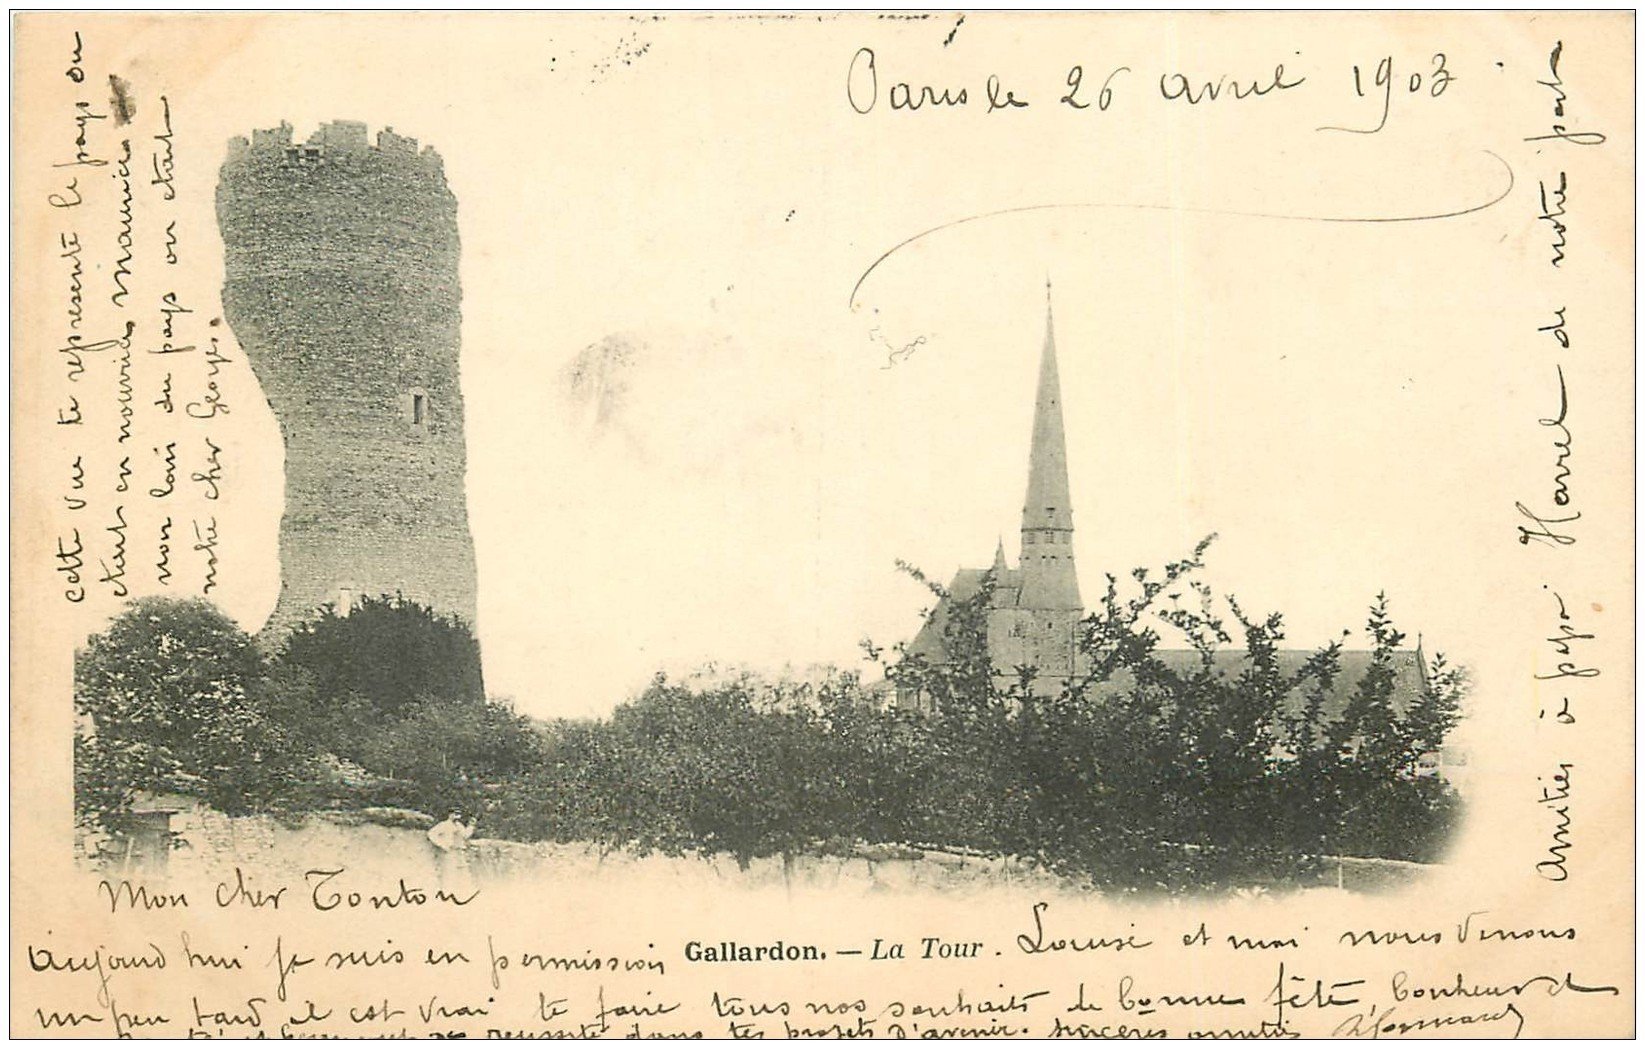 Paris le 26 avril 1903
Mon cher Tonton
Aujourd hui je suis en permission
Gallardon. — La Tour.
Louise et moi nous venons
un peu tard il est vrai te faire tous nos souhaits de bonne fête, bonheur et
réussite dans tes projets d'avenir. sincères amitiés
cette vue te represente le pays ou
etait en nourrice Maurice
non loin du pays ou etait
notre cher Georges.
Amitiés à papa Havrel de notre part